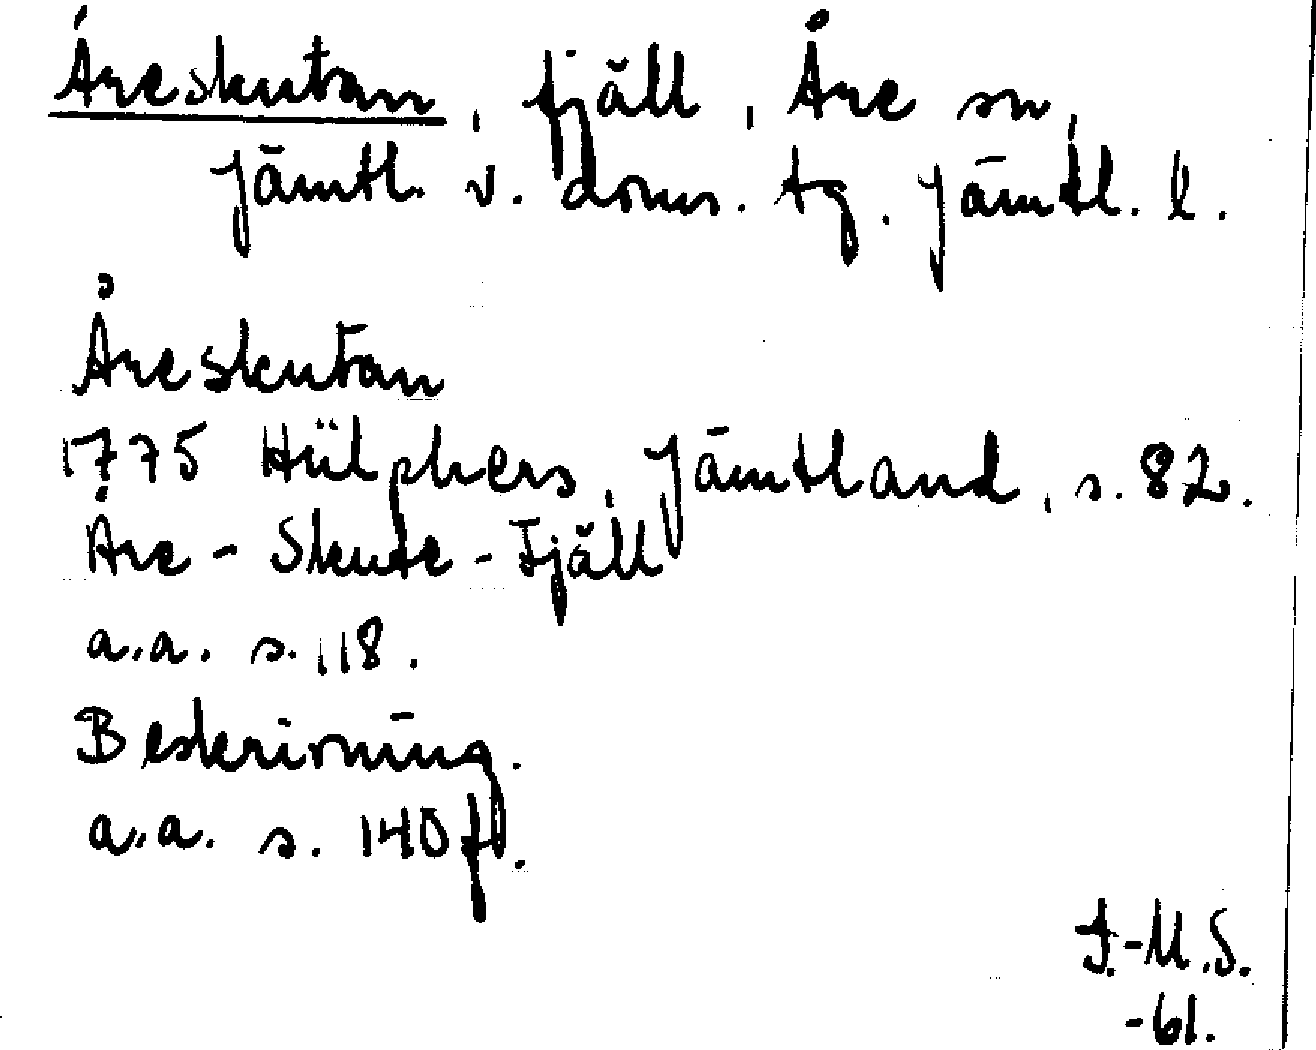 Åreskutan, fjäll, Åre sn,
Jämtl. v. doms. tg. Jämtl. l.
Åreskutan
1775 Hülphers, Jämtland, s. 82.
Åre-Skute-Fjäll
a.a. s. 118.
Beskrivning.
a.a. s. 140 f.
I.-M.S.
-61.